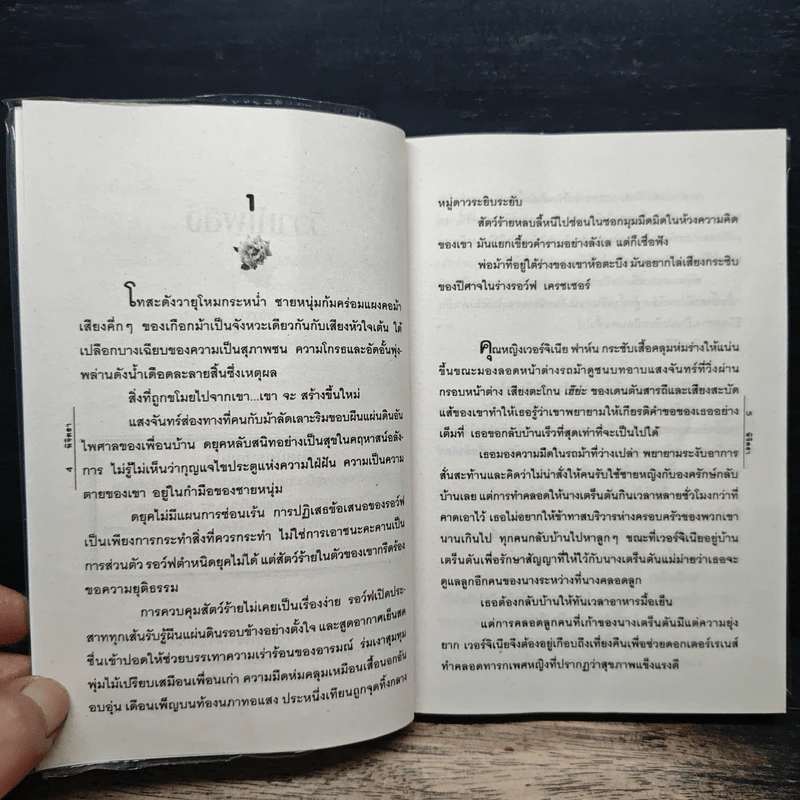 1
โทสะดังวายุโหมกระหน่ำ ชายหนุ่มก้มคร่อมแผงคอม้า
เสียงคึ่กๆ ของเกือกม้าเป็นจังหวะเดียวกันกับเสียงหัวใจเต้น ใต้
เปลือกบางเฉียบของความเป็นสุภาพชน ความโกรธและอัดอั้นพุ่ง-
พล่านดังน้ำเดือดละลายสิ้นซึ่งเหตุผล
สิ่งที่ถูกขโมยไปจากเขา...เขา จะ สร้างขึ้นใหม่
แสงจันทร์ส่องทางที่คนกับม้าลัดเลาะริมขอบผืนแผ่นดินอัน
ไพศาลของเพื่อนบ้าน ดยุคหลับสนิทอย่างเป็นสุขในคฤหาสน์อลัง-
การ ไม่รู้ไม่เห็นว่ากุญแจไขประตูแห่งความใฝ่ฝัน ความเป็นความ
ตายของเขา อยู่ในกำมือของชายหนุ่ม
ดยุคไม่มีแผนการซ่อนเร้น การปฏิเสธข้อเสนอของรอว์ฟ
เป็นเพียงการกระทำสิ่งที่ควรกระทำ ไม่ใช่การเอาชนะคะคานเป็น
การส่วนตัว รอว์ฟตำหนิดยุคไม่ได้ แต่สัตว์ร้ายในตัวของเขากรีดร้อง
ขอความยุติธรรม
การควบคุมสัตว์ร้ายไม่เคยเป็นเรื่องง่าย รอว์ฟเปิดประ-
สาททุกเส้นรับรู้ผืนแผ่นดินรอบข้างอย่างตั้งใจ และสูดอากาศเย็นสด
ชื่นเข้าปอดให้ช่วยบรรเทาความเร่าร้อนของอารมณ์ ร่มเงาสุมทุม
พุ่มไม้เปรียบเสมือนเพื่อนเก่า ความมืดห่มคลุมเหมือนเสื้อนอกอัน
อบอุ่น เดือนเพ็ญบนท้องนภาทอแสง ประหนึ่งเทียนถูกจุดทิ้งกลาง
4 พิจิตตา
หมู่ดาวระยิบระยับ
สัตว์ร้ายหลบลี้หนีไปซ่อนในซอกมุมมืดมิดในห้วงความคิด
ของเขา มันแยกเขี้ยวคำรามอย่างลังเล แต่ก็เชื่อฟัง
พ่อม้าที่อยู่ใต้ร่างของเขาห้อตะบึง มันอยากไล่เสียงกระซิบ
ของปีศาจในร่างรอว์ฟ เครซเชอร์
คุณหญิงเวอร์จิเนีย ฟาห์น กระชับเสื้อคลุมห่มร่างให้แน่น
ขึ้นขณะมองลอดหน้าต่างรถม้าดูชนบทอาบแสงจันทร์ที่วิ่งผ่าน
กรอบหน้าต่าง เสียงตะโกน เฮ้ย่ะ ของเดนตันสารถีและเสียงสะบัด
แส้ของเขาทำให้เธอรู้ว่าเขาพยายามให้เกียรติคำขอของเธออย่าง
เต็มที่ เธอขอกลับบ้านเร็วที่สุดเท่าที่จะเป็นไปได้
เธอมองความมืดในรถม้าที่ว่างเปล่า พยายามระงับอาการ
สั่นสะท้านและคิดว่าไม่น่าสั่งให้คนรับใช้ชายหญิงกับองครักษ์กลับ
บ้านเลย แต่การทำคลอดให้นางเตร็นตันกินเวลาหลายชั่วโมงกว่าที่
คาดเอาไว้ เธอไม่อยากให้ข้าทาสบริวารห่างครอบครัวของพวกเขา
นานเกินไป ทุกคนกลับบ้านไปหาลูกๆ ขณะที่เวอร์จิเนียอยู่บ้าน
เตร็นตันเพื่อรักษาสัญญาที่ให้ไว้กับนางเตร็นตันแม่ม่ายว่าเธอจะ
ดูแลลูกอีกคนของนางระหว่างที่นางคลอดลูก
เธอต้องกลับบ้านให้ทันเวลาอาหารมื้อเย็น
แต่การคลอดลูกคนที่เก้าของนางเตร็นตันมีแต่ความยุ่ง
ยาก เวอร์จิเนียจึงต้องอยู่เกือบถึงเที่ยงคืนเพื่อช่วยดอกเตอร์เรเนส์
ทำคลอดทารกเพศหญิงที่ปรากฏว่าสุขภาพแข็งแรงดี
5 พิจิตตา